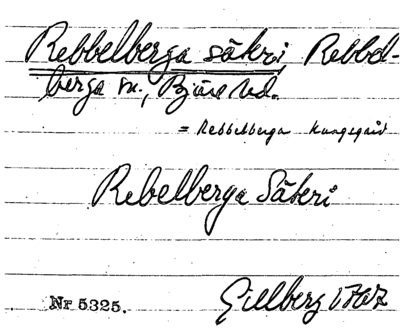 Rebbelberga säteri, Rebbel-
berga sn., Bjäre hd.
= Rebbelberga kungsgård
Rebelberga Säteri
Gillberg 1767
Nr 5325.